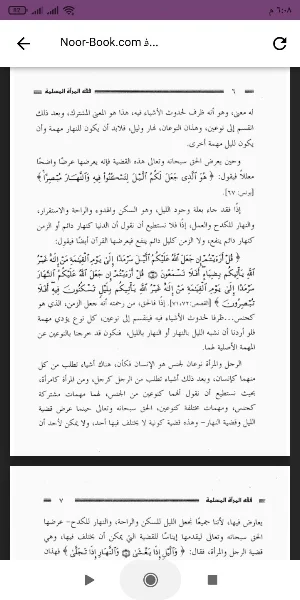 ٦:٠٨ م
Noor-Book.com فـ...
فقه المرأة المسلمة
٦
له معنى، وهو أنه ظرف لحدوث الأشياء فيه، هذا هو المعنى المشترك، وبعد ذلك
انقسم إلى نوعين، وهذان النوعان، نهار وليل، فلابد أن يكون للنهار مهمة وأن
يكون لليل مهمة أخرى.
وحين يعرض الحق سبحانه وتعالى هذه القضية فإنه يعرضها عرضًا واضحًا
معللاً فيقول: ﴿ هُوَ ٱلَّذِى جَعَلَ لَكُمُ ٱلَّيْلَ لِتَسْكُنُوا۟ فِيهِ وَٱلنَّهَارَ مُبْصِرًا ﴾
[يونس: ٦٧].
إذًا فقد جاء بعلة وجود الليل، وهو السكن والهدوء والراحة والاستقرار،
والنهار للكدح والعمل، إذًا فلا نستطيع أن نقول أن الدنيا كنهار دائم أو الزمن
كنهار دائم ينفع، ولا الزمن كليل دائم ينفع فيعرضها القرآن أيضًا فيقول:
﴿ قُلْ أَرَءَيْتُمْ إِن جَعَلَ ٱللَّهُ عَلَيْكُمُ ٱلَّيْلَ سَرْمَدًا إِلَىٰ يَوْمِ ٱلْقِيَٰمَةِ مَنْ إِلَٰهٌ غَيْرُ
ٱللَّهِ يَأْتِيكُم بِضِيَآءٍ أَفَلَا تَسْمَعُونَ ۝ قُلْ أَرَءَيْتُمْ إِن جَعَلَ ٱللَّهُ عَلَيْكُمُ ٱلنَّهَارَ
سَرْمَدًا إِلَىٰ يَوْمِ ٱلْقِيَٰمَةِ مَنْ إِلَٰهٌ غَيْرُ ٱللَّهِ يَأْتِيكُم بِلَيْلٍ تَسْكُنُونَ فِيهِ أَفَلَا
تُبْصِرُونَ ﴾ [القصص:٧١، ٧٢]. إذًا فالخالق، من رحمته أنه جعل الزمن، الذي هو
كجنس...ظرفًا لحدوث الأشياء فيه فينقسم إلى نوعين، كل نوع يؤدي مهمة
فلو أردنا أن نشبه الليل بالنهار أو النهار بالليل، فنكون قد خرجنا بالنوعين عن
المهمة الأصلية لهما.
الرجل والمرأة نوعان لجنس هو الإنسان فكأن، هناك أشياء تطلب من كل
منهما كإنسان، وبعد ذلك أشياء تطلب من الرجل كرجل، ومن المرأة كامرأة،
بحيث نستطيع أن نقول أنهما كنوعين من الجنس، لهما مهمات مشتركة
كجنس، ومهمات مختلفة كنوعين، الحق سبحانه وتعالى حينما عرض قضية
الليل وقضية النهار- وهذه قضية كونية لا يختلف فيها أحد، ولا يمكن لأحد أن
فقه المرأة المسلمة
٧
يعارض فيها، لأننا جميعًا نجعل الليل للسكن والراحة، والنهار للكدح- عرضها
سبحانه وتعالى ليقدمها إيناسًا للقضية التي يمكن أن يختلف فيها، وهي
قضية الرجل والمرأة، فقال: ﴿ وَٱلَّيْلِ إِذَا يَغْشَىٰ ۝ وَٱلنَّهَارِ إِذَا تَجَلَّىٰ ﴾ فهذان